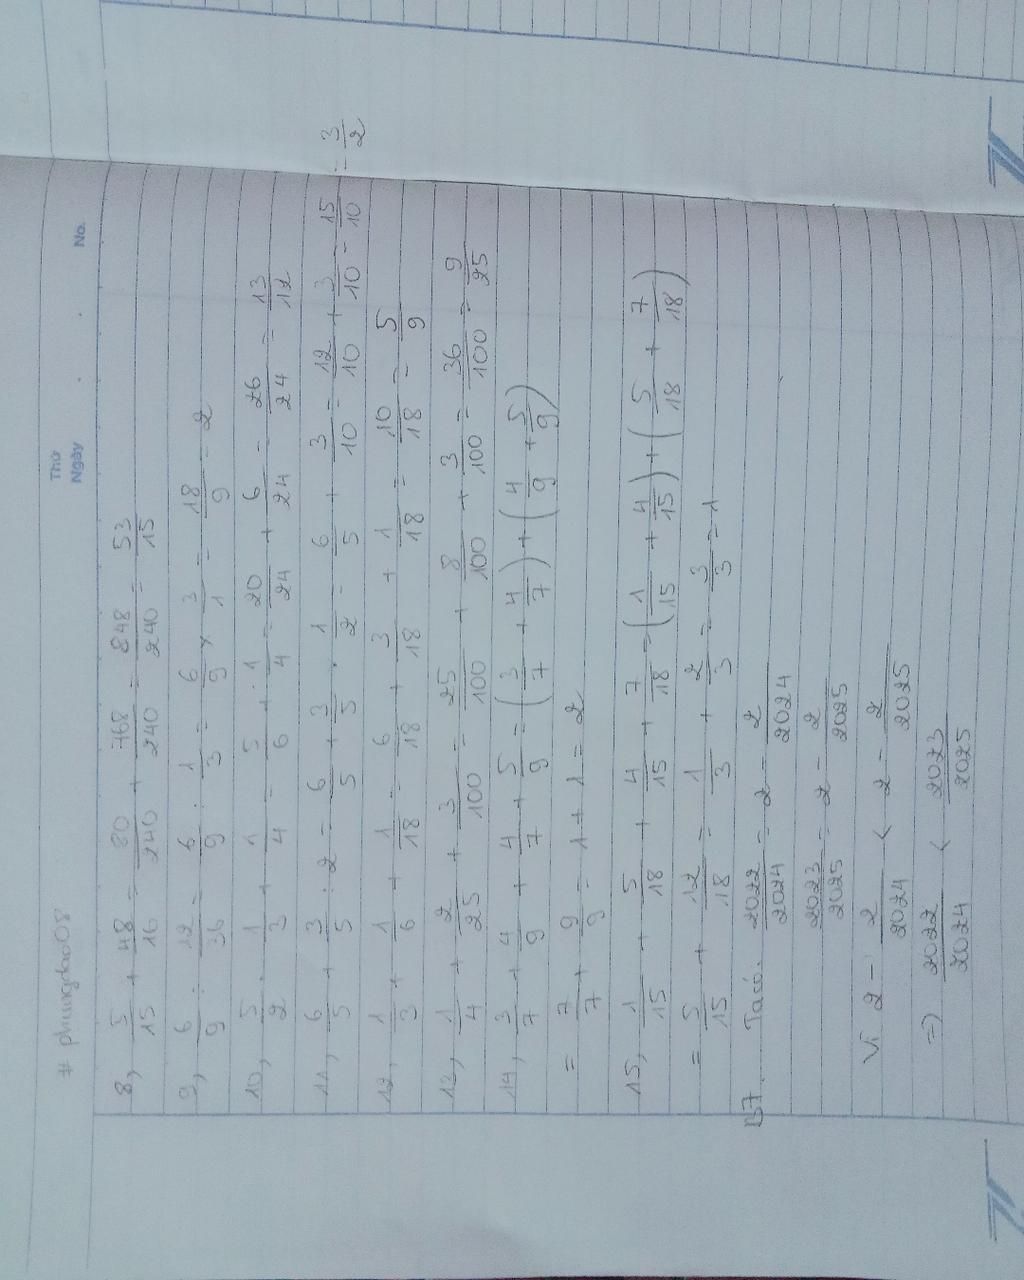 # phungdao08
Thứ
Ngày . . No.
8, 5/15 + 48/16 = 80/240 + 768/240 = 848/240 = 53/15
9, 6/9 : 12/36 = 6/9 : 1/3 = 6/9 x 3/1 = 18/9 = 2
10, 5/2 . 1/3 + 1/4 = 5/6 + 1/4 = 20/24 + 6/24 = 26/24 = 13/12
11, 6/5 + 3/5 : 2 = 6/5 + 3/5 . 1/2 = 6/5 + 3/10 = 12/10 + 3/10 = 15/10 = 3/2
12, 1/3 + 1/6 + 1/18 = 6/18 + 3/18 + 1/18 = 10/18 = 5/9
13, 1/4 + 2/25 + 3/100 = 25/100 + 8/100 + 3/100 = 36/100 = 9/25
14, 3/7 + 4/9 + 4/7 + 5/9 = (3/7 + 4/7) + (4/9 + 5/9)
= 7/7 + 9/9 = 1 + 1 = 2
15, 1/15 + 5/18 + 4/15 + 7/18 = (1/15 + 4/15) + (5/18 + 7/18)
= 5/15 + 12/18 = 1/3 + 2/3 = 3/3 = 1
B7. Ta có. 2022/2024 = 2 - 2/2024
2023/2025 = 2 - 2/2025
Vì 2 - 2/2024 < 2 - 2/2025
=> 2022/2024 < 2023/2025